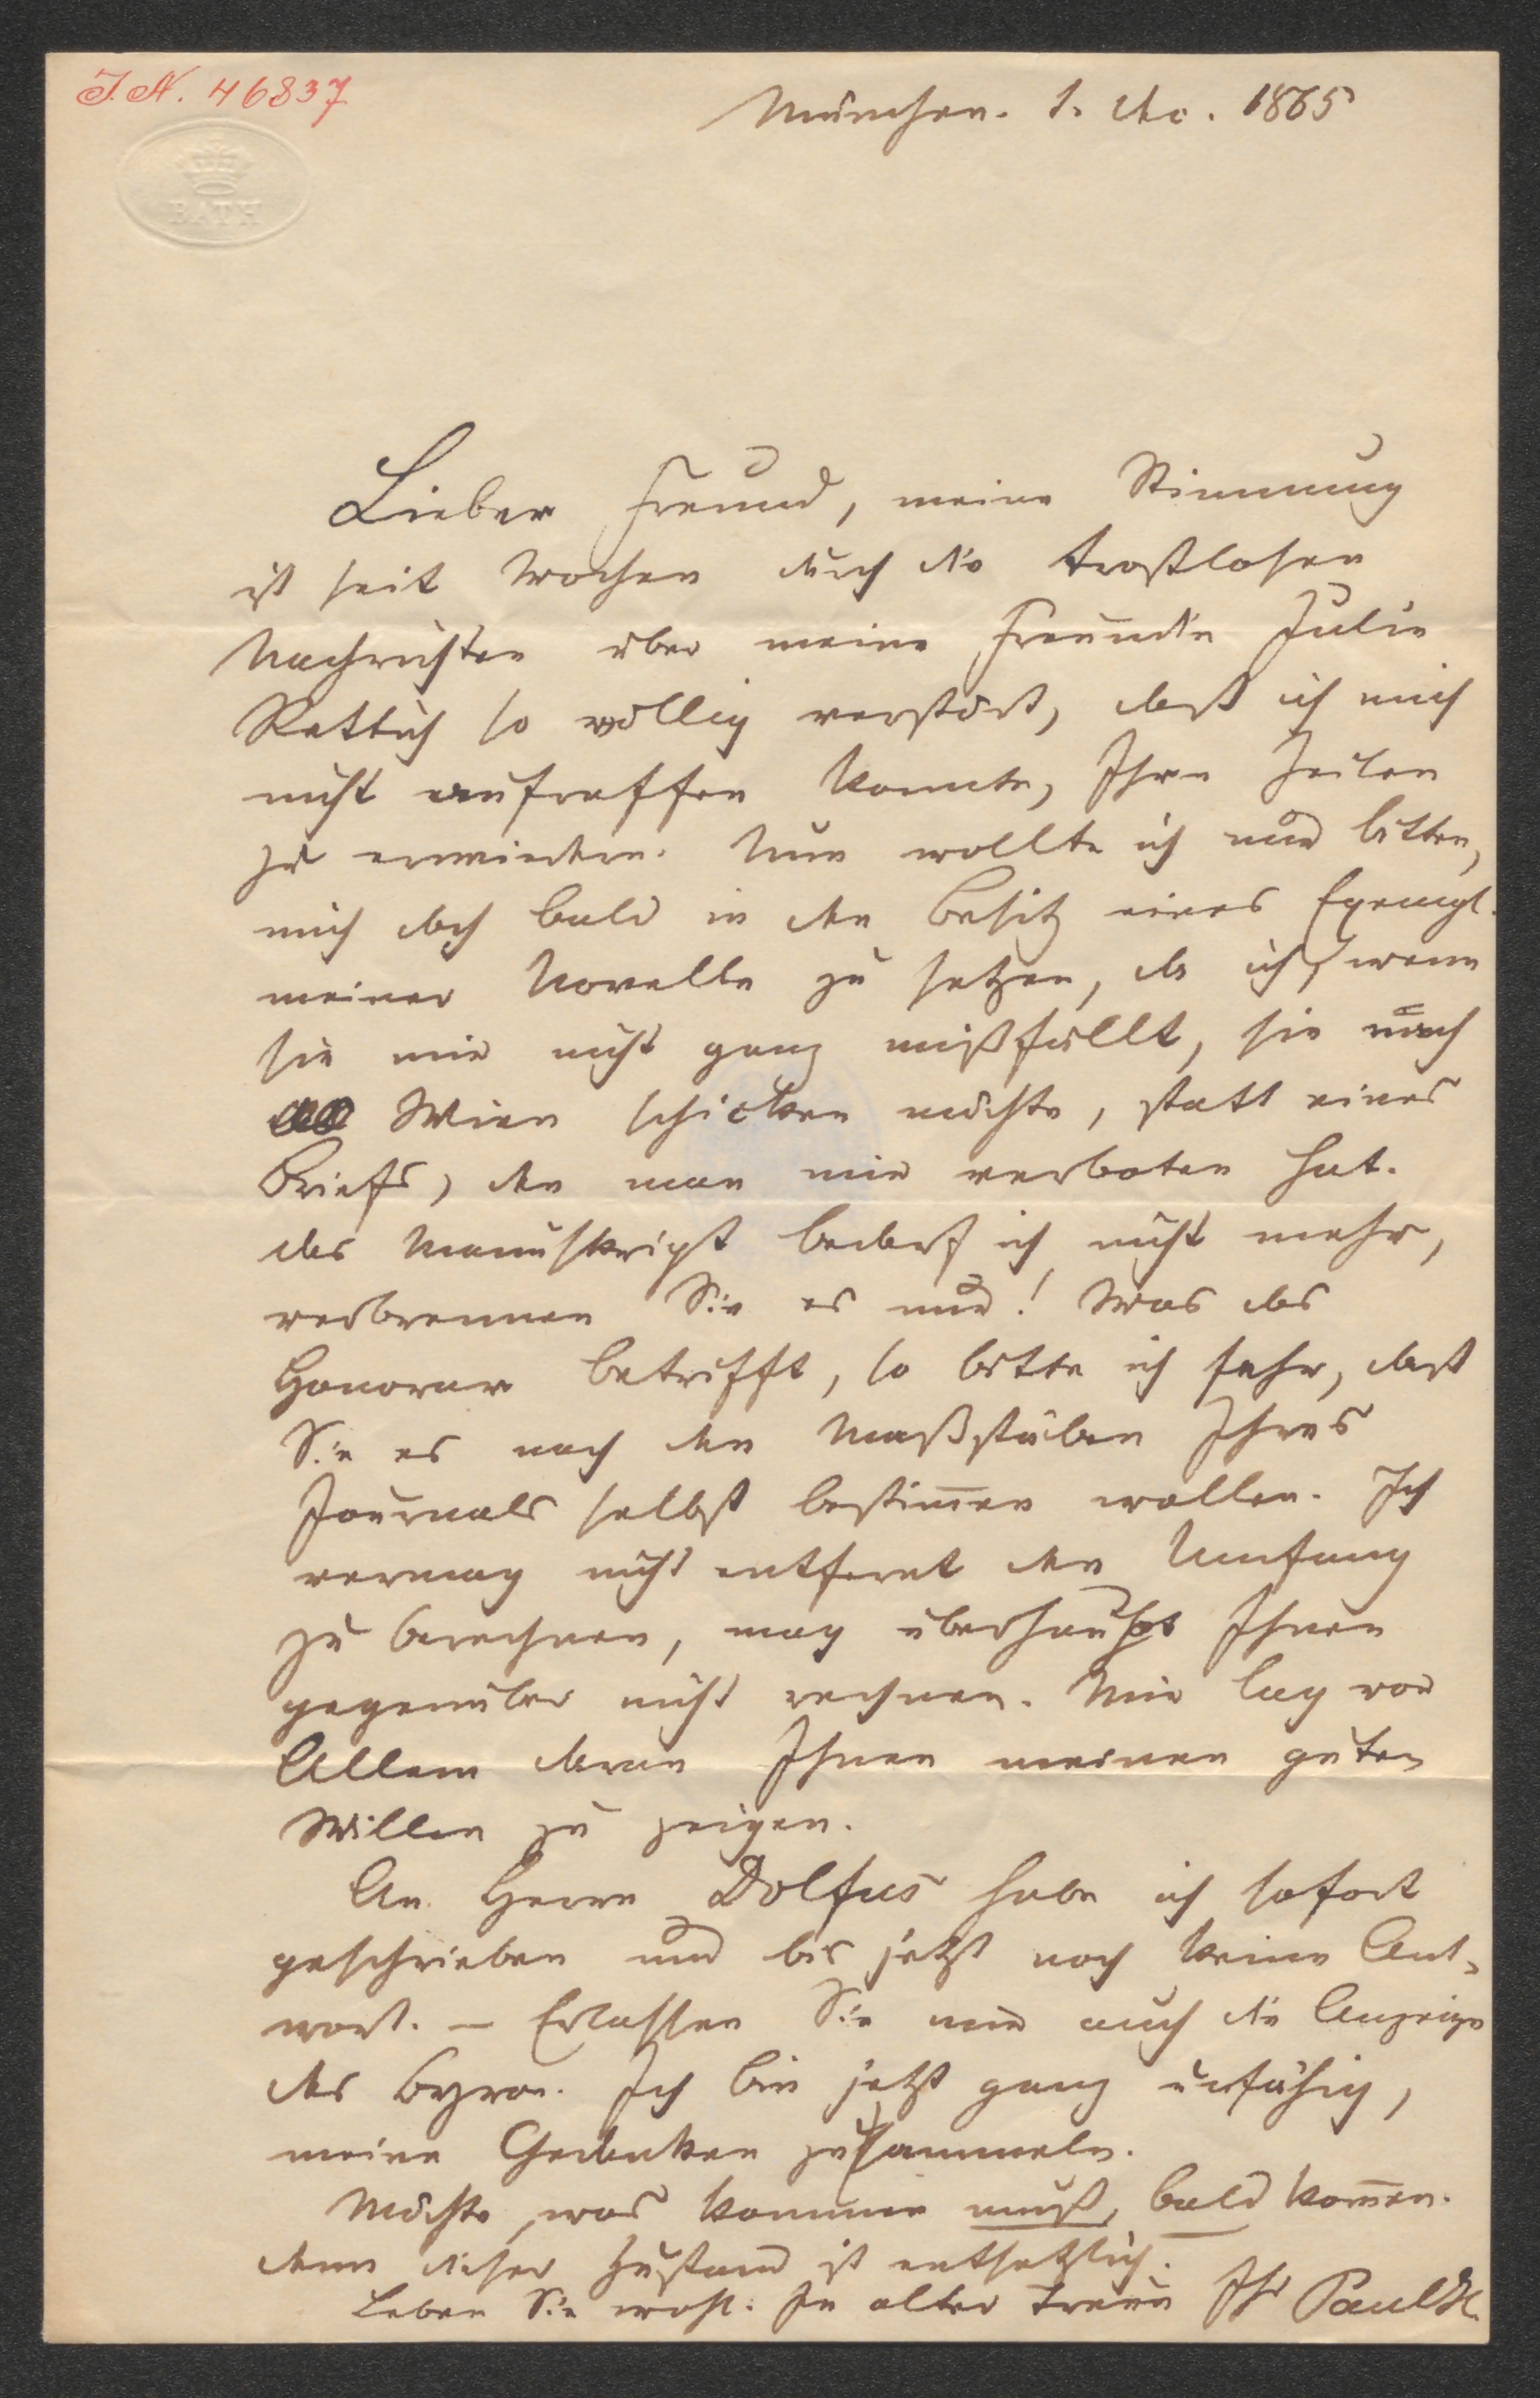 J.N. 46837
München. 1. Dec. 1865
BATH
Lieber Freund, meine Stimmung
ist seit Wochen durch die trostlosen
Nachrichten über meine Freundin Julie
Rettich so völlig verstört, daß ich mich
nicht aufraffen konnte, Ihre Zeilen
zu erwiedern. Nun wollte ich nur bitten,
mich doch bald in den Besitz eines Exempl.
meiner Novelle zu setzen, da ich, wenn
sie mir nicht ganz mißfällt, sie nach
Wien schicken möchte, statt eines
Briefs, den man mir verboten hat.
Das Manuskript bedarf ich nicht mehr,
verbrennen Sie es nur! Was das
Honorar betrifft, so bitte ich sehr, daß
Sie es nach den Maßstäben Ihres
Journals selbst bestim̄en wollen. Ich
vermag nicht entfernt den Umfang
zu berechnen, mag überhaupt Ihnen
gegenüber nicht rechnen. Mir lag vor
Allem daran Ihnen meinen guten
Willen zu zeigen.
An Herrn Dolfus habe ich sofort
geschrieben und bis jetzt noch keine Ant-
wort. – Erlassen Sie mir auch die Anzeige
des Byron. Ich bin jetzt ganz unfähig,
meine Gedanken zu sammeln.
Möchte, was kommen muß, bald kom̄en.
denn dieser Zustand ist entsetzlich.
Leben Sie wohl. In alter Treue Ihr Paul H.